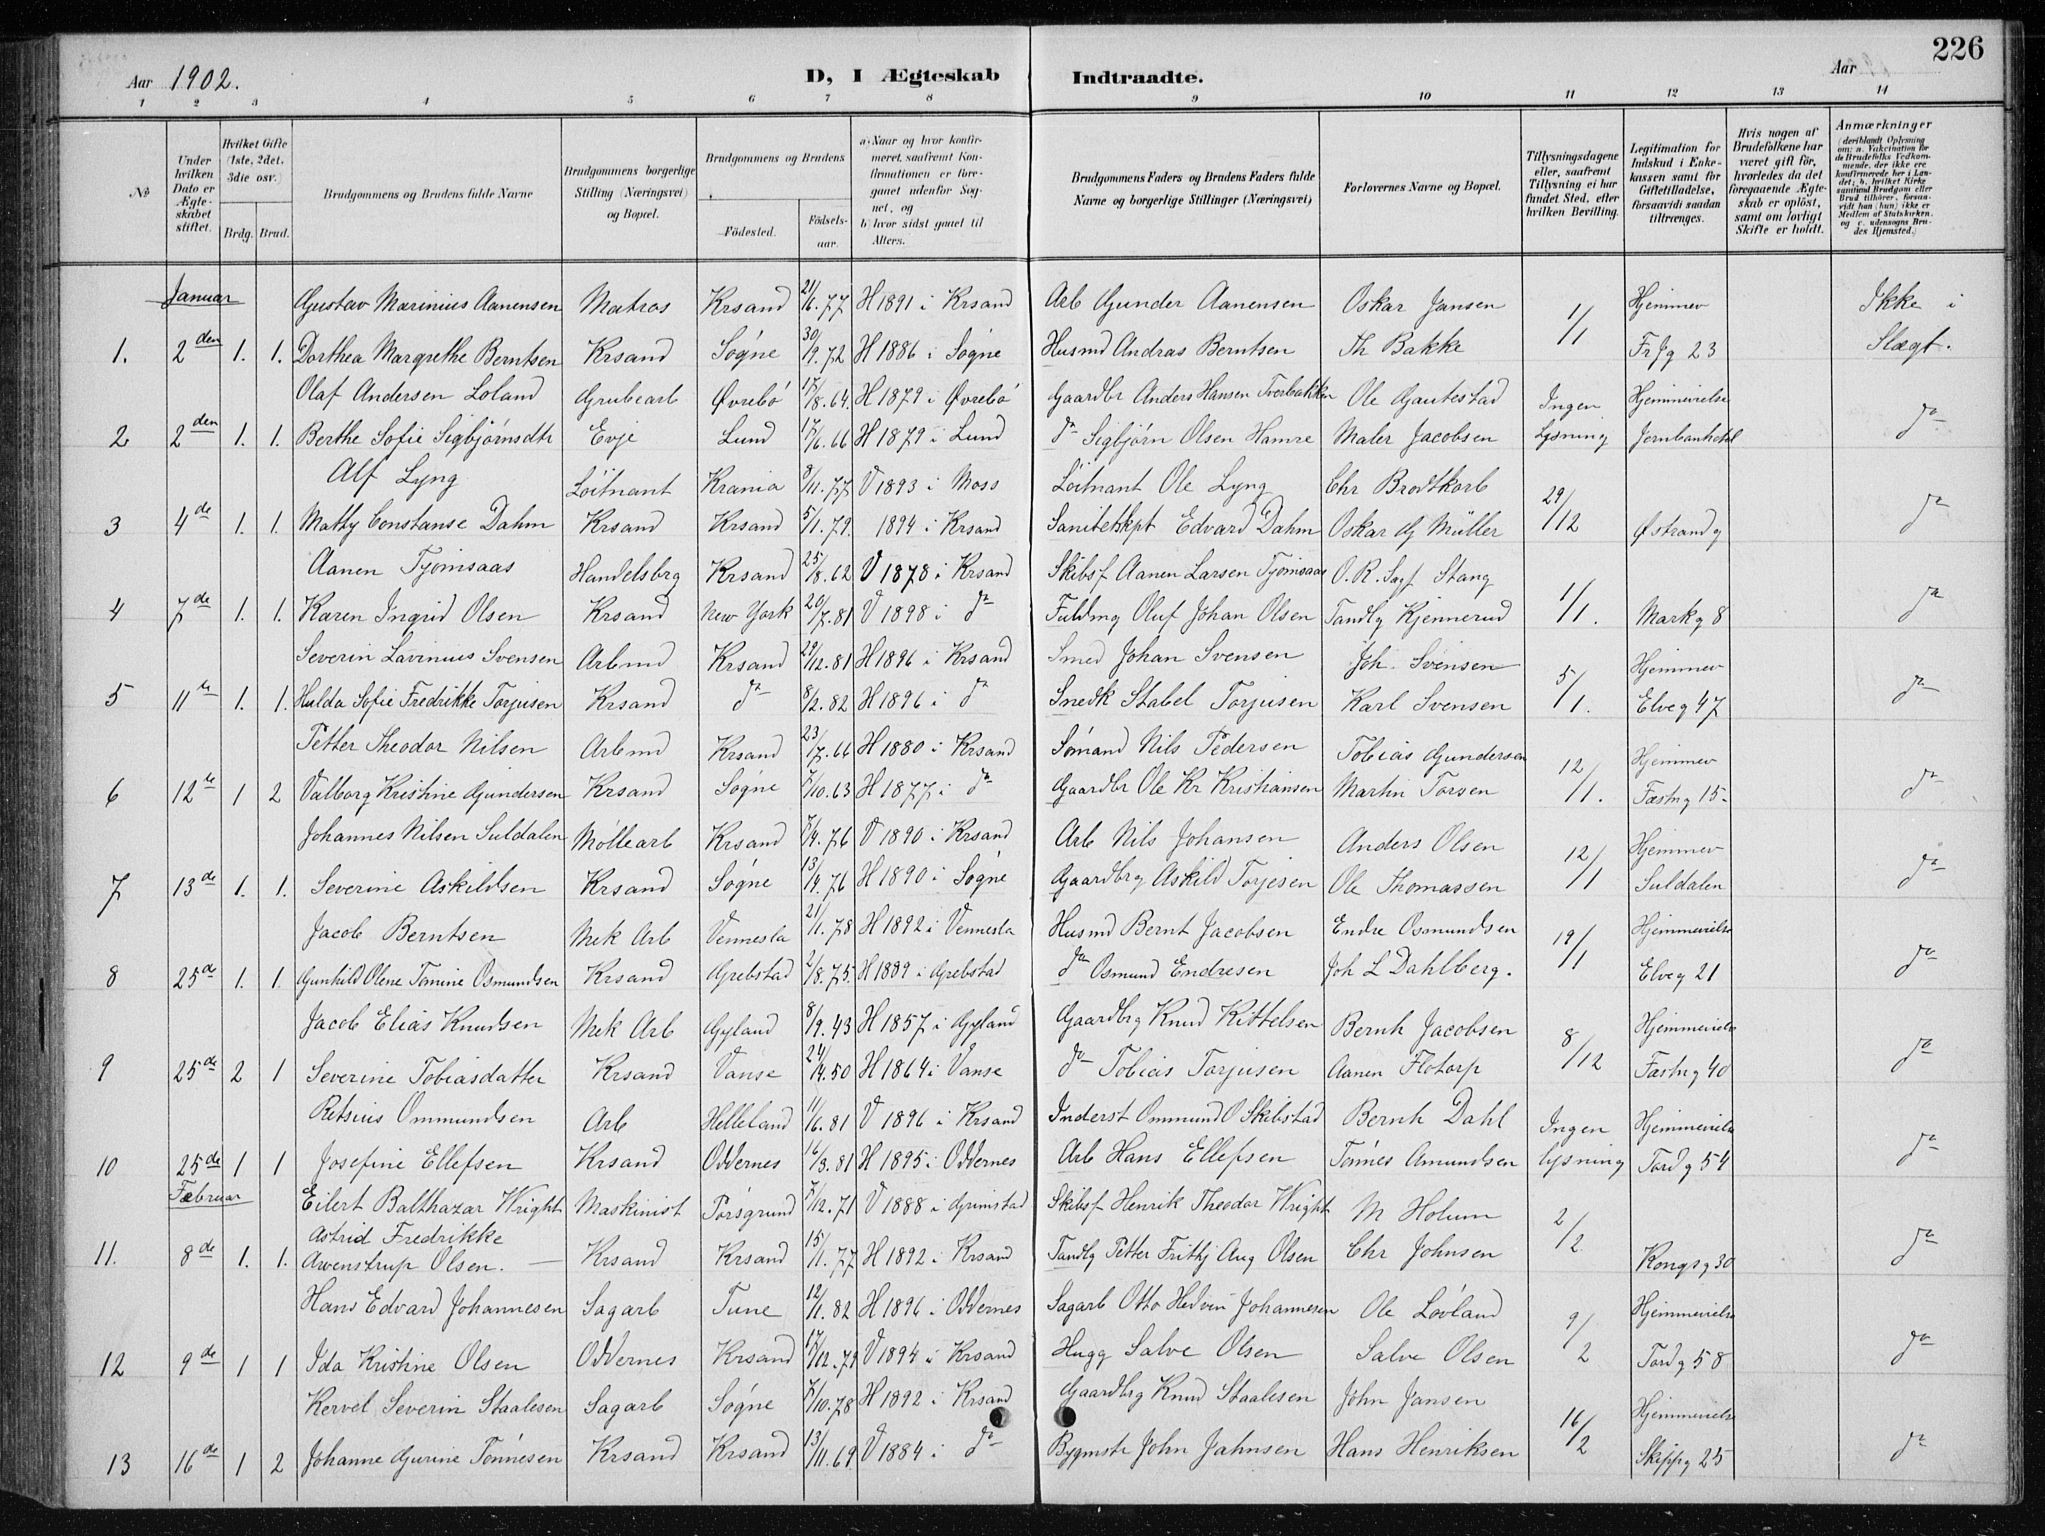 226
Aar 1902. D, I Ægteskab Indtraadte. Aar
1 2 3 4 5 6 7 8 9 10 11 12 13 14
No
Under hvilken Dato er Ægteskabet stiftet.
Hvilket Gifte (1ste, 2det, 3die osv.)
Brdg. Brud.
Brudgommens og Brudens fulde Navne
Brudgommens borgerlige Stilling (Næringsvei) og Bopæl.
Brudgommens og Brudens
Födested. Födselsaar.
a) Naar og hvor konfirmeret, saafremt Konfirmationen er foregaaet udenfor Sognet, og
b) hvor sidst gaaet til Alters.
Brudgommens Faders og Brudens Faders fulde Navne og borgerlige Stillinger (Næringsvei)
Forlovernes Navne og Bopæl.
Tillysningsdagene eller, saafremt Tillysning ei har fundet Sted, efter hvilken Bevilling.
Legitimation for Indskud i Enkekassen samt for Giftetilladelse, forsaavidt saadan tiltrænges.
Hvis nogen af Brudefolkene har været gift för, hvorledes da det foregaaende Ægteskab er oplöst, samt om lovligt Skifte er holdt.
Anmærkninger (deriblandt Oplysning om: a. Vakcination for de Brudefolks Vedkommende, der ikke ere konfirmerede her i Landet; b. hvilket Kirkesamfund Brudgom eller Brud tilhörer, forsaavidt han (hun) ikke er Medlem af Statskirken, og c. udensogns Brudes Hjemsted.)
Januar Gustav Marinius Aanensen Matros Krsand 21/6.77 H 1891 i Krsand Arb Gunder Aanensen Oskar Jansen 1/1 Hjemmev Ikke i
1. 2den 1. 1. Dorthea Margrethe Berntsen Krsand Søgne 30/9.72 H 1886 i Søgne Husmd Andras Berntsen Th Bakke Frjg 23 Slægt.
Olaf Andersen Loland Grubearb Øvrebø 17/8.64. H 1879 i Øvrebø Gaardbr Anders Hansen Ole Gautestad Ingen Hjemmevielse
2 2den 1. 1. Berthe Sofie Sigbjørnsdtr Evje Lund 17/6.66 H 1879 i Lund do Sigbjørn Olsen Hamre Maler Jacobsen Lysning Jernbanhotel do
Alf Lyng Löitnant Krania 8/11.77 V 1893 i Moss Löitnant Ole Lyng Chr Brodtkorb 29/12
3 4de 1. 1. Mathy Constanse Dahm Krsand Krsand 5/1.79. 1894 i Krsand Sanitetskpt Edvard Dahm Oskar G Müller Østrandg do
Aanen Tjomsaas Handelsbrg Krsand 25/8.62 V 1878 i Krsand Skibsf Aanen Larsen Tjomsaas O. R. Sagf Stang
4 7de 1. 1. Karen Ingrid Olsen Krsand New York 20/7.81 V 1898 i do Fuldmg Oluf Johan Olsen Tandlg Kjennerud 1/1. Markg 8 do
Severin Lavinius Svensen Arbmd Krsand 29/12.81 H 1896 i Krsand Smed Johan Svensen Joh. Svensen 5/1. Hjemmev
5 11te 1. 1. Hulda Sofie Fredrikke Torjusen Krsand do 8/2.82 H 1896 i do Snedk Stabel Torjusen Karl Svensen Elveg 47 do
Petter Theodor Nilsen Arbmd Krsand 23/7.66 H 1880 i Krsand Sømand Nils Pedersen Tobias Gundersen 12/1. Hjemmev
6 12te 1 2 Valborg Kristine Gundersen Krsand Søgne 7/10.63 H 1877 i do Gaardbr Ole Kr Kristiansen Martin Torsen Fæstng 15. do
Johannes Nilsen Suldalen Møllearb Krsand 7/4.76 V 1890 i Krsand Arb Nils Johansen Anders Olsen 12/1 Hjemmev
7 13de 1. 1. Severine Askildsen Krsand Søgne 13/9.76 H 1890 i Søgne Gaardbrg Askild Torjesen Ole Thomassen Suldalen do
Jacob Berntsen Mek Arb Vennesla 21/1.78 H 1892 i Vennesla Husmd Bernt Jacobsen Endre Osmundsen 19/1 Hjemmevielse
8 25de 1. 1. Gunhild Olene Tomine Osmundsen Krsand Grebstad 2/8.75. H 1889 i Grebstad do Osmund Endresen Joh L Dahlberg. Elveg 21 do
Jacob Elias Knudsen Mek Arb Gyland 8/9.43 H 1857 i Gyland Gaardbrg Knud Kittelsen Bernh Jacobsen 8/12 Hjemmevielse
9 25de 2 1 Severine Tobiasdatter Krsand Vanse 24/4.50 H 1864 i Vanse do Tobias Torjusen Aanen Flotorp Fæstng 40 do
Retsius Ommundsen Arb Helleland 11/6.81 V 1896 i Krsand Inderst Ommund O Skibstad Bernh Dahl Ingen Hjemmevielse
10 25de 1 1 Josefine Ellefsen Krsand Oddernes 16/3.81 H 1895 i Oddernes Arb Hans Ellefsen Tønnes Amundsen lysning Tordg 54 do
Februar Eilert Balthazar Wright Maskinist Porsgrund 7/12.71 V 1888 i Grimstad Skibsf Henrik Theodor Wright M Holum 2/2
Astrid Fredrikke
11. 8de 1. 1. Arvenstrup Olsen. Krsand Krsand 15/1.77 H 1892 i Krsand Tandlg Petter Frithj Aug Olsen Chr Johnsen Kongsg 30 do
Hans Edvard Johannesen Sagarb Tune 12/1.82 H 1896 i Oddernes Sagarb Otto Hedvin Johannesen Ole Løvland 9/2 Hjemmevielse
12 9de 1 1 Ida Kristine Olsen Oddernes Krsand 17/12.79 V 1894 i Krsand Hugg Salve Olsen Salve Olsen Tordg 58 do
Kervel Severin Staalesen Sagarb Søgne 7/10.78 H 1892 i Krsand Gaardbrg Knud Staalesen John Jansen 16/2 Hjemmevielse
13 16de 1 2 Johanne Gurine Tønnesen Krsand Krsand 13/11.69 V 1884 i do Bygmstr John Jahnsen Hans Henriksen Skippg 25 do